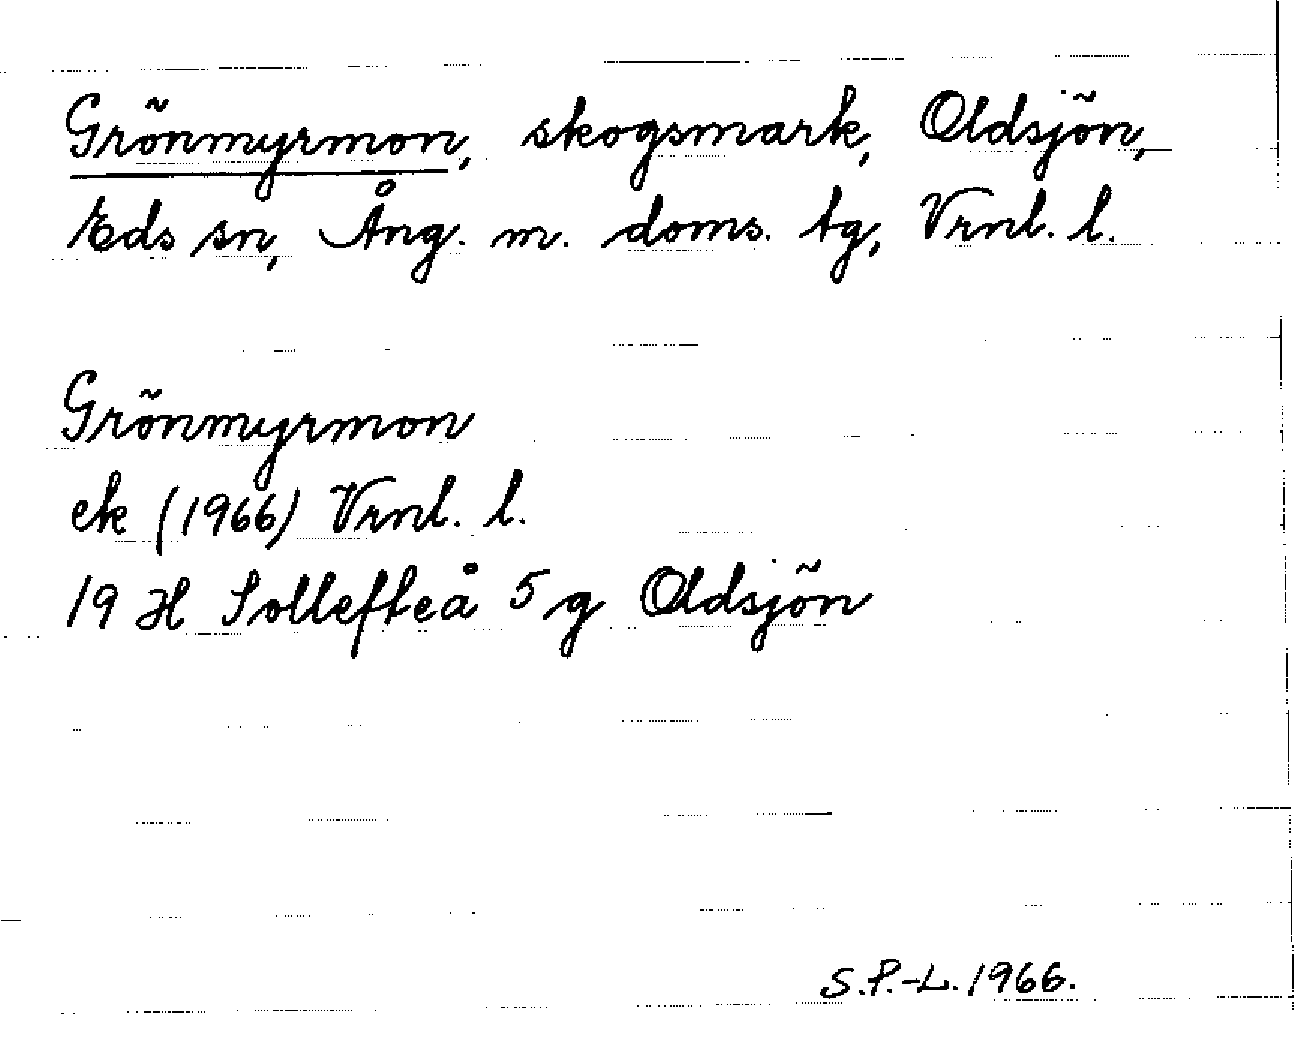 Grönmyrmon, skogsmark, Oldsjön,
Eds sn, Ång. m. doms. tg, Vrnl. l.
Grönmyrmon
ek (1966) Vrnl. l.
19 H Sollefteå 5 g Oldsjön
S.P.-L. 1966.